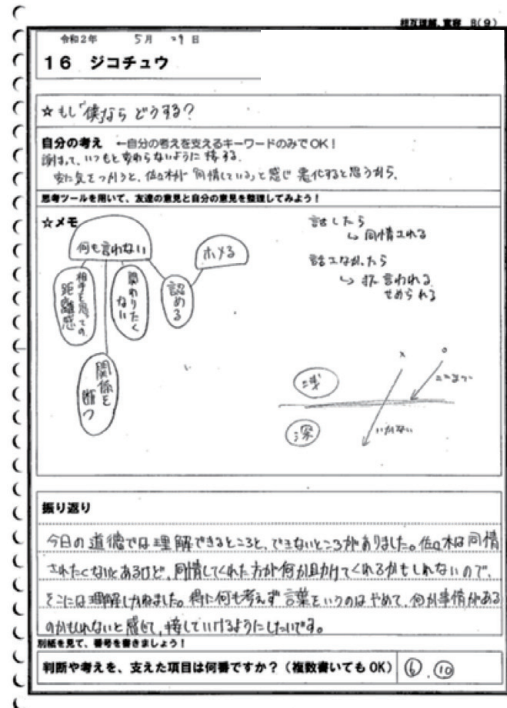 相互理解、寛容 B(9)
令和2年 5月 29日
16 ジコチュウ
☆もし僕ならどうする?
自分の考え ←自分の考えを支えるキーワードのみでOK!
謝まって、いつもと変わらないように接する。
変に気をつかうと、佐々木が「同情している」と感じ悪化すると思うから。
思考ツールを用いて、友達の意見と自分の意見を整理してみよう!
☆メモ
何も言わない
ホメる
相手を思っての距離感
関わりたくない
認める
関係を断つ
話したら
↳ 同情される
話さなかったら
↳ 言われる
せめられる
浅
深
×
○
ここまで
いかない
振り返り
今日の道徳では理解できるところと、できないところがありました。佐々木は同情
されたくないとあるけど、同情してくれた方が何か助けてくれるかもしれないので、
そこには理解しかねました。特に何も考えず言葉をいうのはやめて、何か事情がある
のかもしれないと感じて、接していけるようにしたいです。
別紙を見て、番号を書きましょう!
判断や考えを、支えた項目は何番ですか?(複数書いてもOK) ⑥、⑩